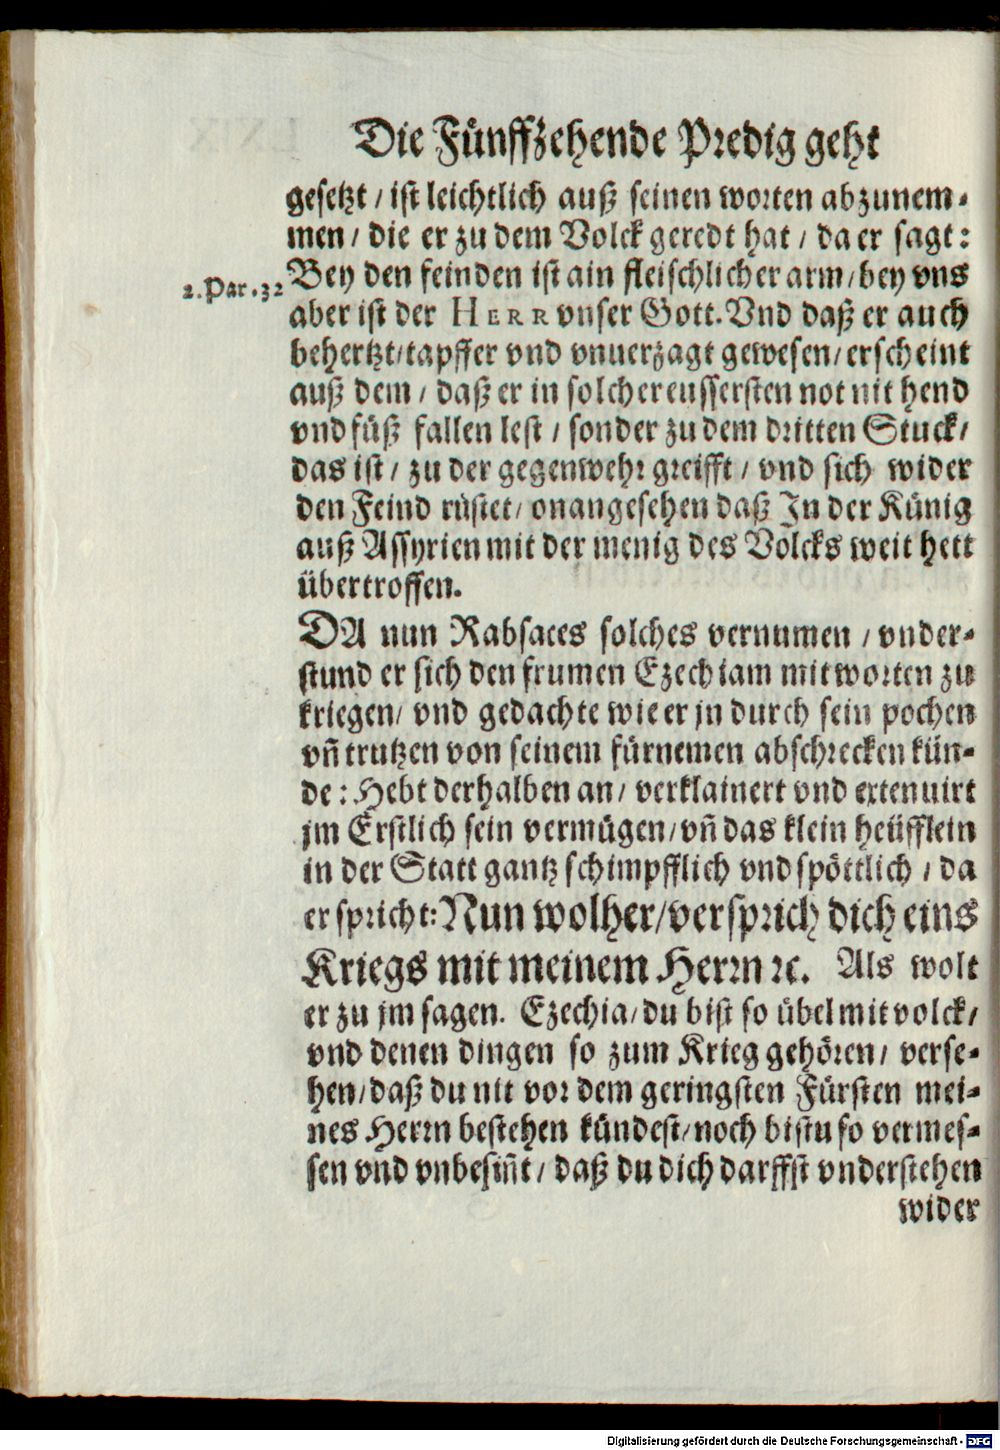 Die Fünffzehende Predig geht
gesetzt / ist leichtlich auß seinen worten abzunem-
men / die er zu dem Volck geredt hat / da er sagt:
2. Par. 32 Bey den feinden ist ain fleischlicher arm / bey vns
aber ist der HERR vnser Gott. Vnd daß er auch
behertzt / tapffer vnd vnuerzagt gewesen / erscheint
auß dem / daß er in solcher eussersten not nit hend
vnd füß fallen lest / sonder zu dem dritten Stuck /
das ist / zu der gegenwehr greifft / vnd sich wider
den Feind rüstet / onangesehen daß In der Künig
auß Assyrien mit der menig des Volcks weit hett
übertroffen.
DA nun Rabsaces solches vernumen / vnder-
stund er sich den frumen Ezechiam mit worten zu
kriegen / vnd gedachte wie er jn durch sein pochen
vñ trutzen von seinem fürnemen abschrecken kün-
de: Hebt derhalben an / verklainert vnd extenuirt
jm Erstlich sein vermügen / vñ das klein heüfflein
in der Statt gantz schimpfflich vnd spöttlich / da
er spricht: Nun wolher / versprich dich eins
Kriegs mit meinem Herrn ꝛc. Als wolt
er zu jm sagen. Ezechia / du bist so übel mit volck /
vnd denen dingen so zum Krieg gehören / verse-
hen / daß du nit vor dem geringsten Fürsten mei-
nes Herrn bestehen kündest / noch bistu so vermes-
sen vnd vnbesiñt / daß du dich darffst vnderstehen
wider
Digitalisierung gefördert durch die Deutsche Forschungsgemeinschaft - DFG